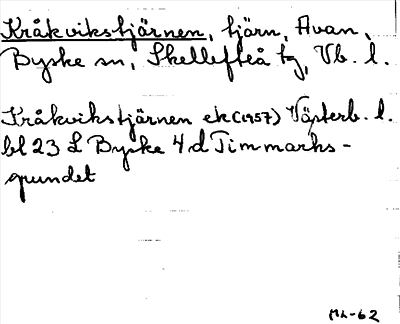 Kråkvikstjärnen, tjärn, Avan,
Byske sn, Skellefteå tg, Vb. l.
Kråkvikstjärnen ek (1957) Västerb. l.
bl 23 L Byske 4 d Timmarks-
grundet
ML-62